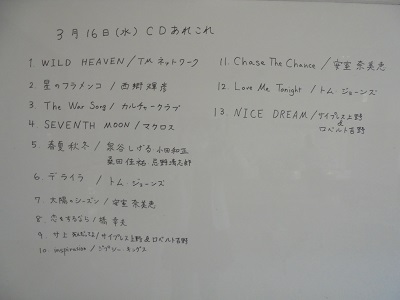 3月16日(水) CDあれこれ
1. WILD HEAVEN / TM ネットワーク
2. 星のフラメンコ / 西郷輝彦
3. The War Song / カルチャークラブ
4. SEVENTH MOON / マクロス
5. 春夏秋冬 / 泉谷しげる 小田和正
桑田佳祐 忌野清志郎
6. デライラ / トム・ジョーンズ
7. 太陽のシーズン / 安室奈美恵
8. 恋をするなら / 橋 幸夫
9. サ上 / サイプレス上野 & ロベルト吉野
10. inspiration / ジプシー・キングス
11. Chase The Chance / 安室奈美恵
12. Love Me Tonight / トム・ジョーンズ
13. NICE DREAM / サイプレス上野
&
ロベルト吉野